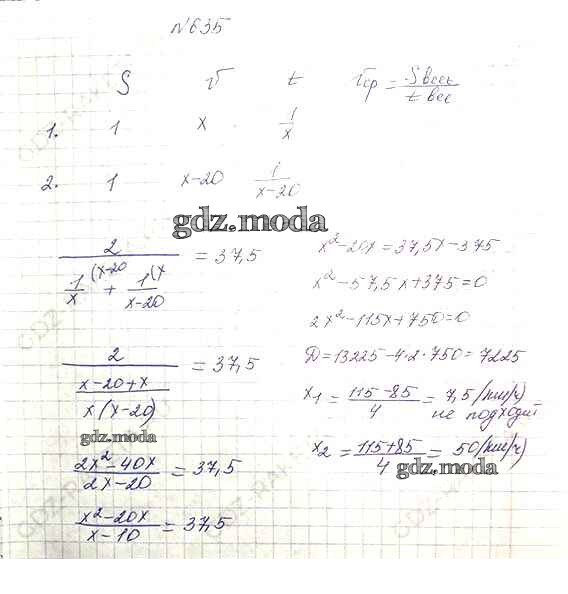 N635
S V t Vср = Sвсех / t вес
1. 1 x 1/x
2. 1 x-20 1/(x-20)
gdz.moda
2 / (1/x (x-20 + 1/(x-20) (x) = 37,5
2 / ((x-20+x) / x(x-20)) = 37,5
gdz.moda
(2x²-40x) / (2x-20) = 37,5
(x²-20x) / (x-10) = 37,5
x²-20x=37,5x-375
x²-57,5x+375=0
2x²-115x+750=0
D=13225-4·2·750=7225
x₁ = (115-85)/4 = 7,5 (км/ч)
не подходит
x₂ = (115+85)/4 = 50 (км/ч)
gdz.moda